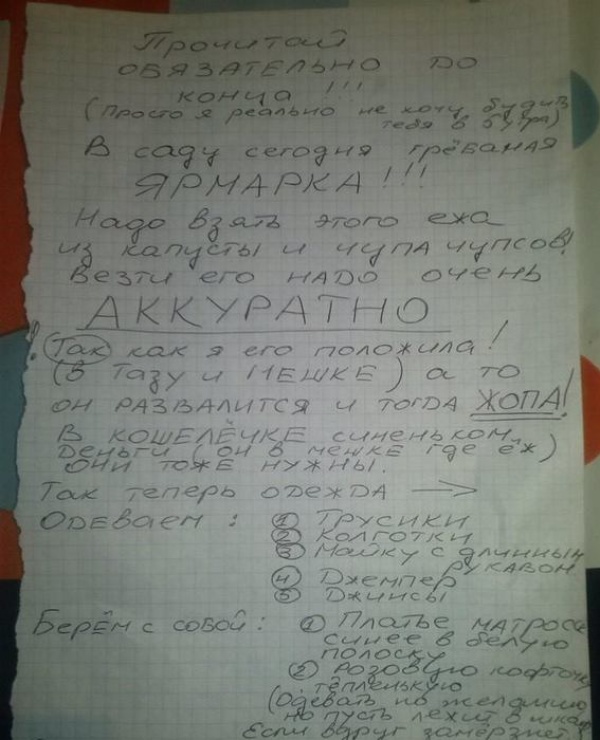 Прочитай
ОБЯЗАТЕЛЬНО ДО
КОНЦА !!!
(Просто я реально не хочу будить
тебя в 6 утра)
В саду сегодня грёбаная
ЯРМАРКА!!!
Надо взять этого ежа
из капусты и чупа чупсов!
Везти его НАДО очень
АККУРАТНО
! Так как я его положила!
(В ТАЗУ и МЕШКЕ) а то
он РАЗВАЛИТСЯ и тогда ЖОПА!
В КОШЕЛЁЧКЕ синеньком
деньги (он в мешке где ёж)
они тоже нужны.
Так теперь одежда →
Одеваем: ① Трусики
② Колготки
③ Майку с длинным
рукавом
④ Джемпер
⑤ Джинсы
Берём с собой: ① Платье матроск
синее в белую
полоску
② розовую кофточку
тёпленькую
(Одевать по желанию
но пусть лежит в шкаф
Если вдруг замёрзнет